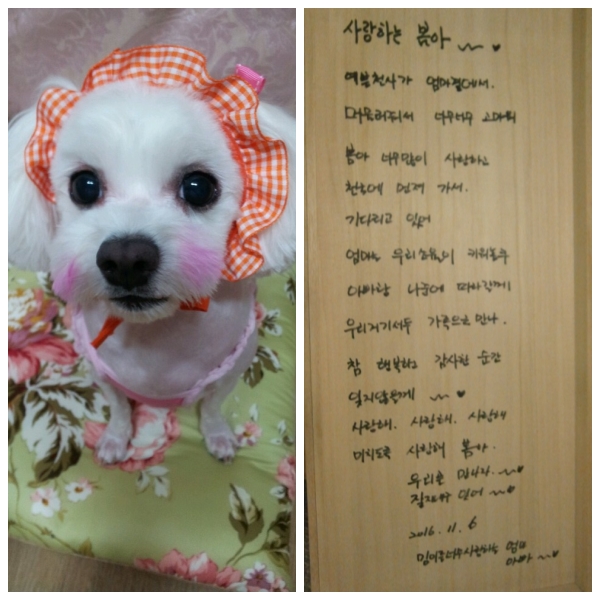 사랑하는 봄아 ~~♥
예쁜천사가 엄마곁에서.
머물러줘서 너무너무 고마워
봄아 너무많이 사랑하고
천국에 먼저 가서.
기다리고 있어
엄마는 우리 키워놓구
아빠랑 나중에 따라갈께
우리거기서두 가족으로 만나.
참 행복하고 감사한 순간
잊지않을께 ~~♥
사랑해. 사랑해. 사랑해
미치도록 사랑해 봄아.
우리 또 만나자. ~♥
잘자구 있어 ~♥
2016. 11. 6
너무사랑하는 엄마
아빠 ~~♥